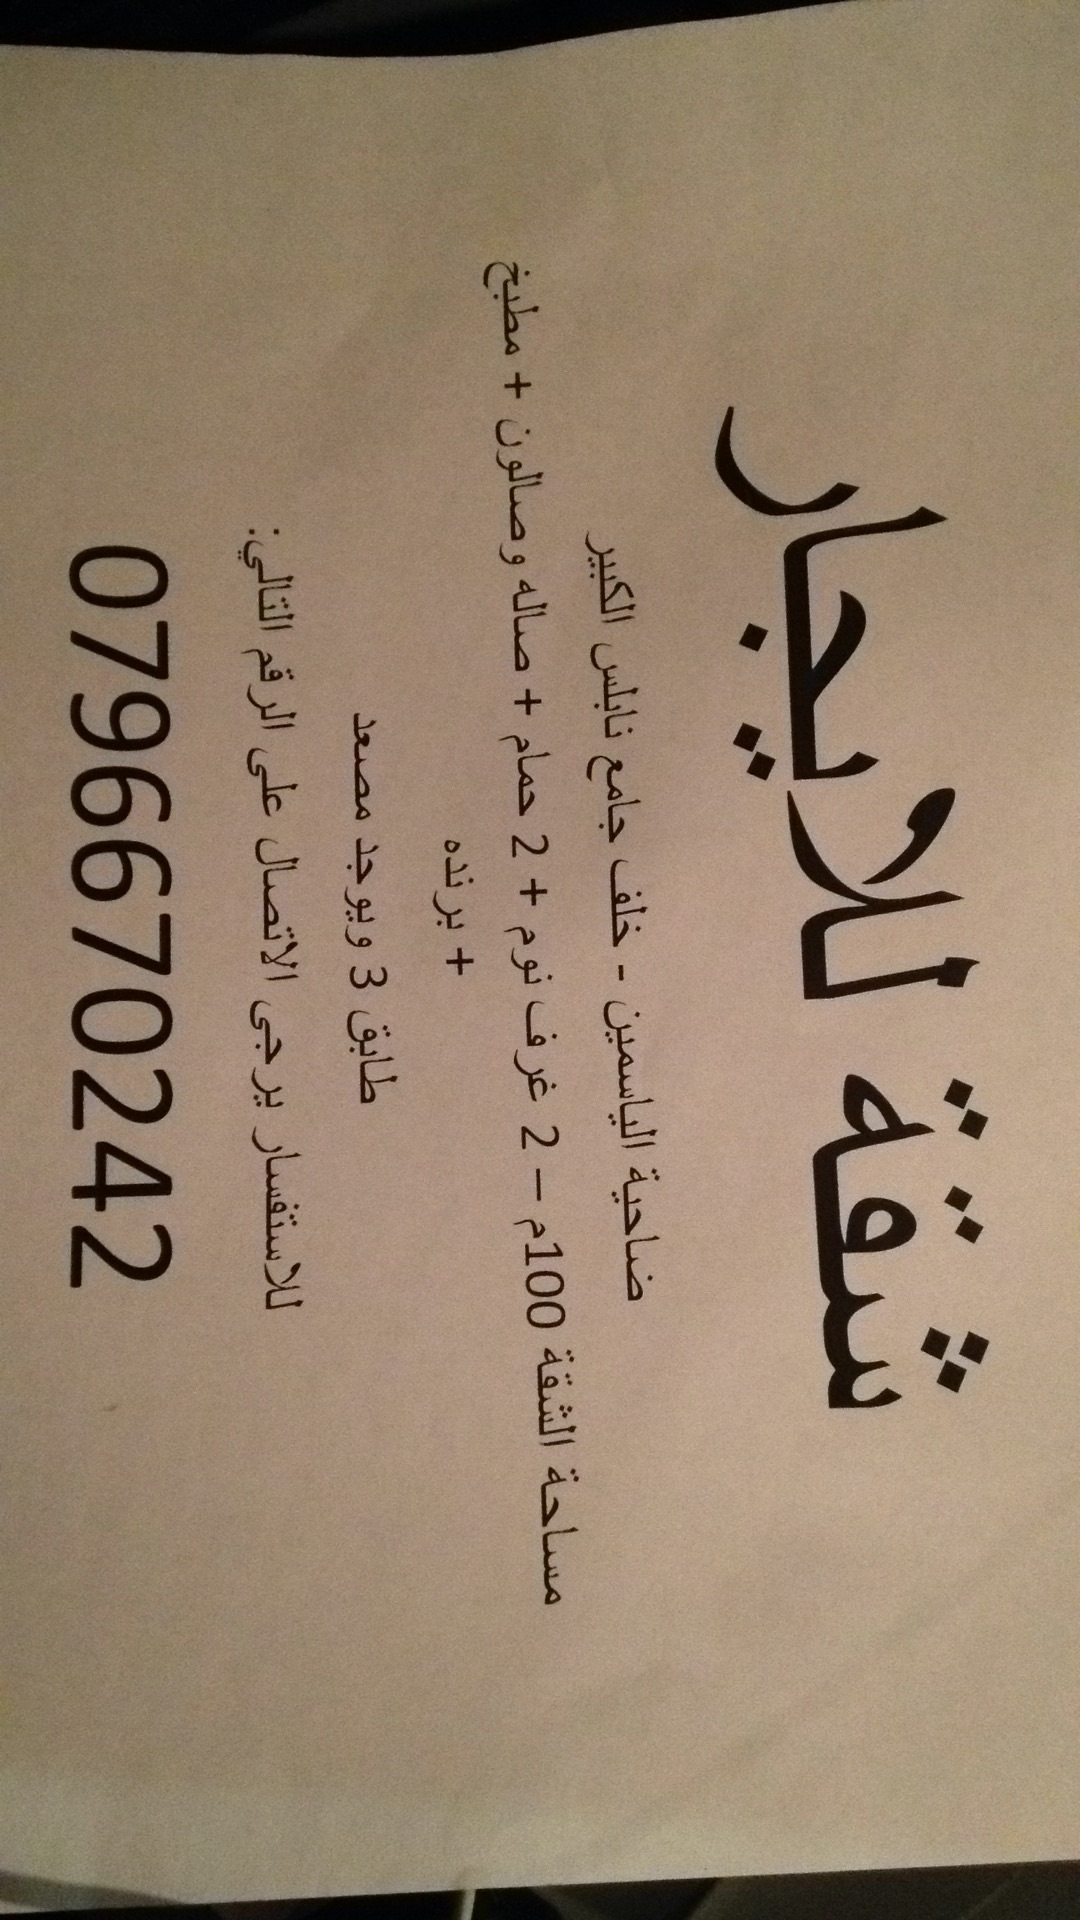 شقة للايجار
ضاحية الياسمين - خلف جامع نابلس الكبير
مساحة الشقة 100م – 2 غرف نوم + 2 حمام + صاله وصالون + مطبخ
+ برنده
طابق 3 ويوجد مصعد
للاستفسار يرجى الاتصال على الرقم التالي:
0796670242